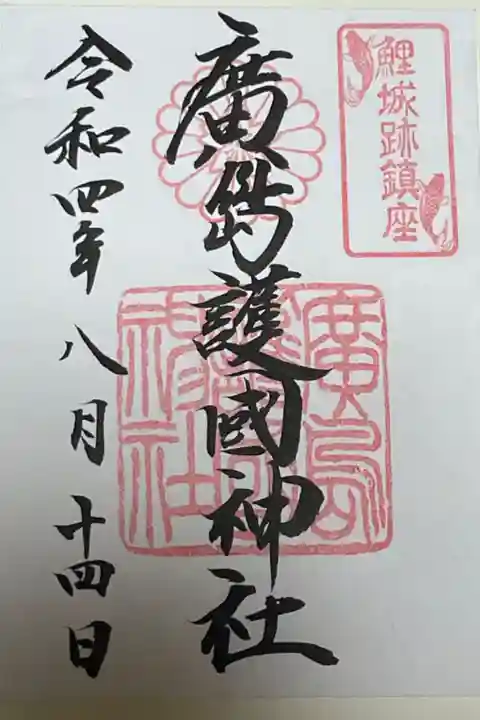 鯉城跡鎮座
廣島護國神社
廣島護國神社
令和四年八月十四日